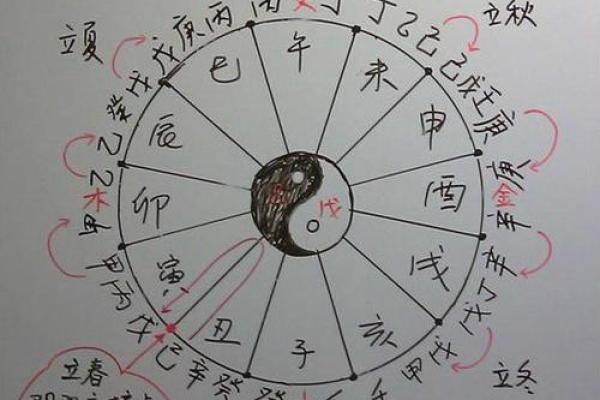 立夏
立秋
丙
丁
丁
乙
己
己
戊
壬
庚
庚
金
辛
辛
丁
戊
戊
甲
立冬
癸
辛
己
戊
丙
甲
甲
木
乙
乙
癸
戊
戊
庚
丙
午
未
申
酉
戌
亥
子
丑
寅
卯
辰
巳
戊
立春